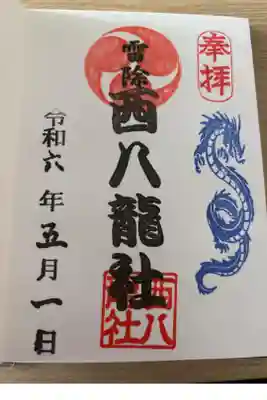 奉拝
雷除
西八龍社
西八龍社
令和六年五月一日